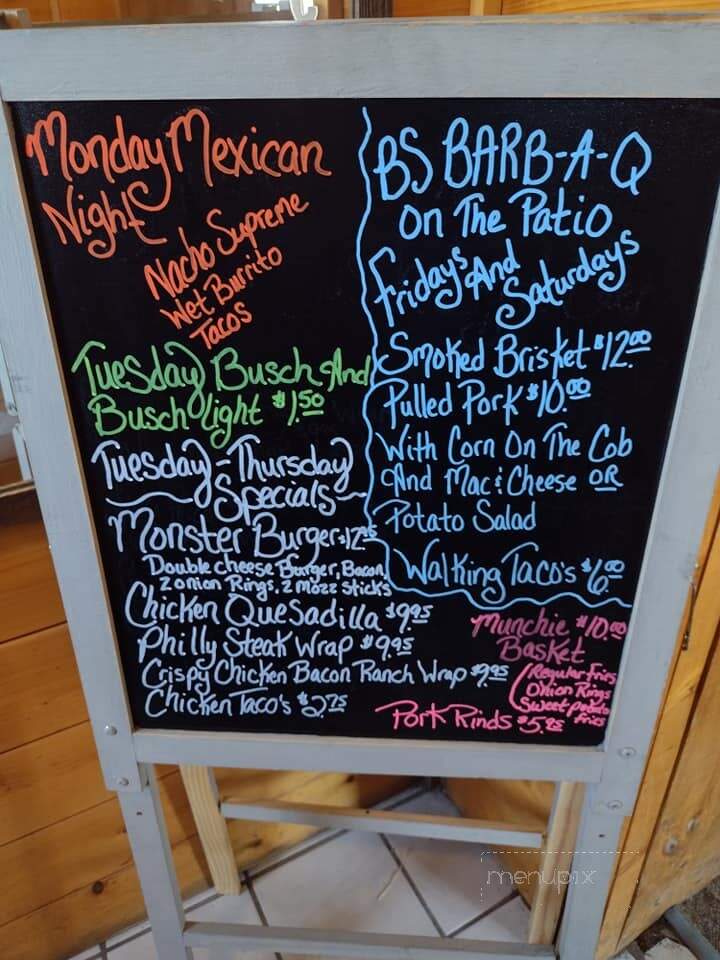 Monday Mexican
Night
Nacho Supreme
Wet Burrito
Tacos
Tuesday Busch And
Busch Light $1.50
Tuesday-Thursday
Specials
Monster Burger $12.95
Double cheese Burger, Bacon,
2 onion Rings, 2 Mozz Sticks
Chicken QueSadilla $9.95
Philly Steak Wrap $9.95
Crispy Chicken Bacon Ranch Wrap $9.95
Chicken Taco's $2.75
BS BARB-A-Q
On The Patio
Fridays And
Saturdays
Smoked Brisket $12.00
Pulled Pork $10.00
With Corn On The Cob
And Mac & Cheese OR
Potato Salad
Walking Taco's $6.00
Munchie $10.00
Basket
(Regular Fries
Onion Rings
Sweet potato
fries
Pork Rinds $5.25
menupix